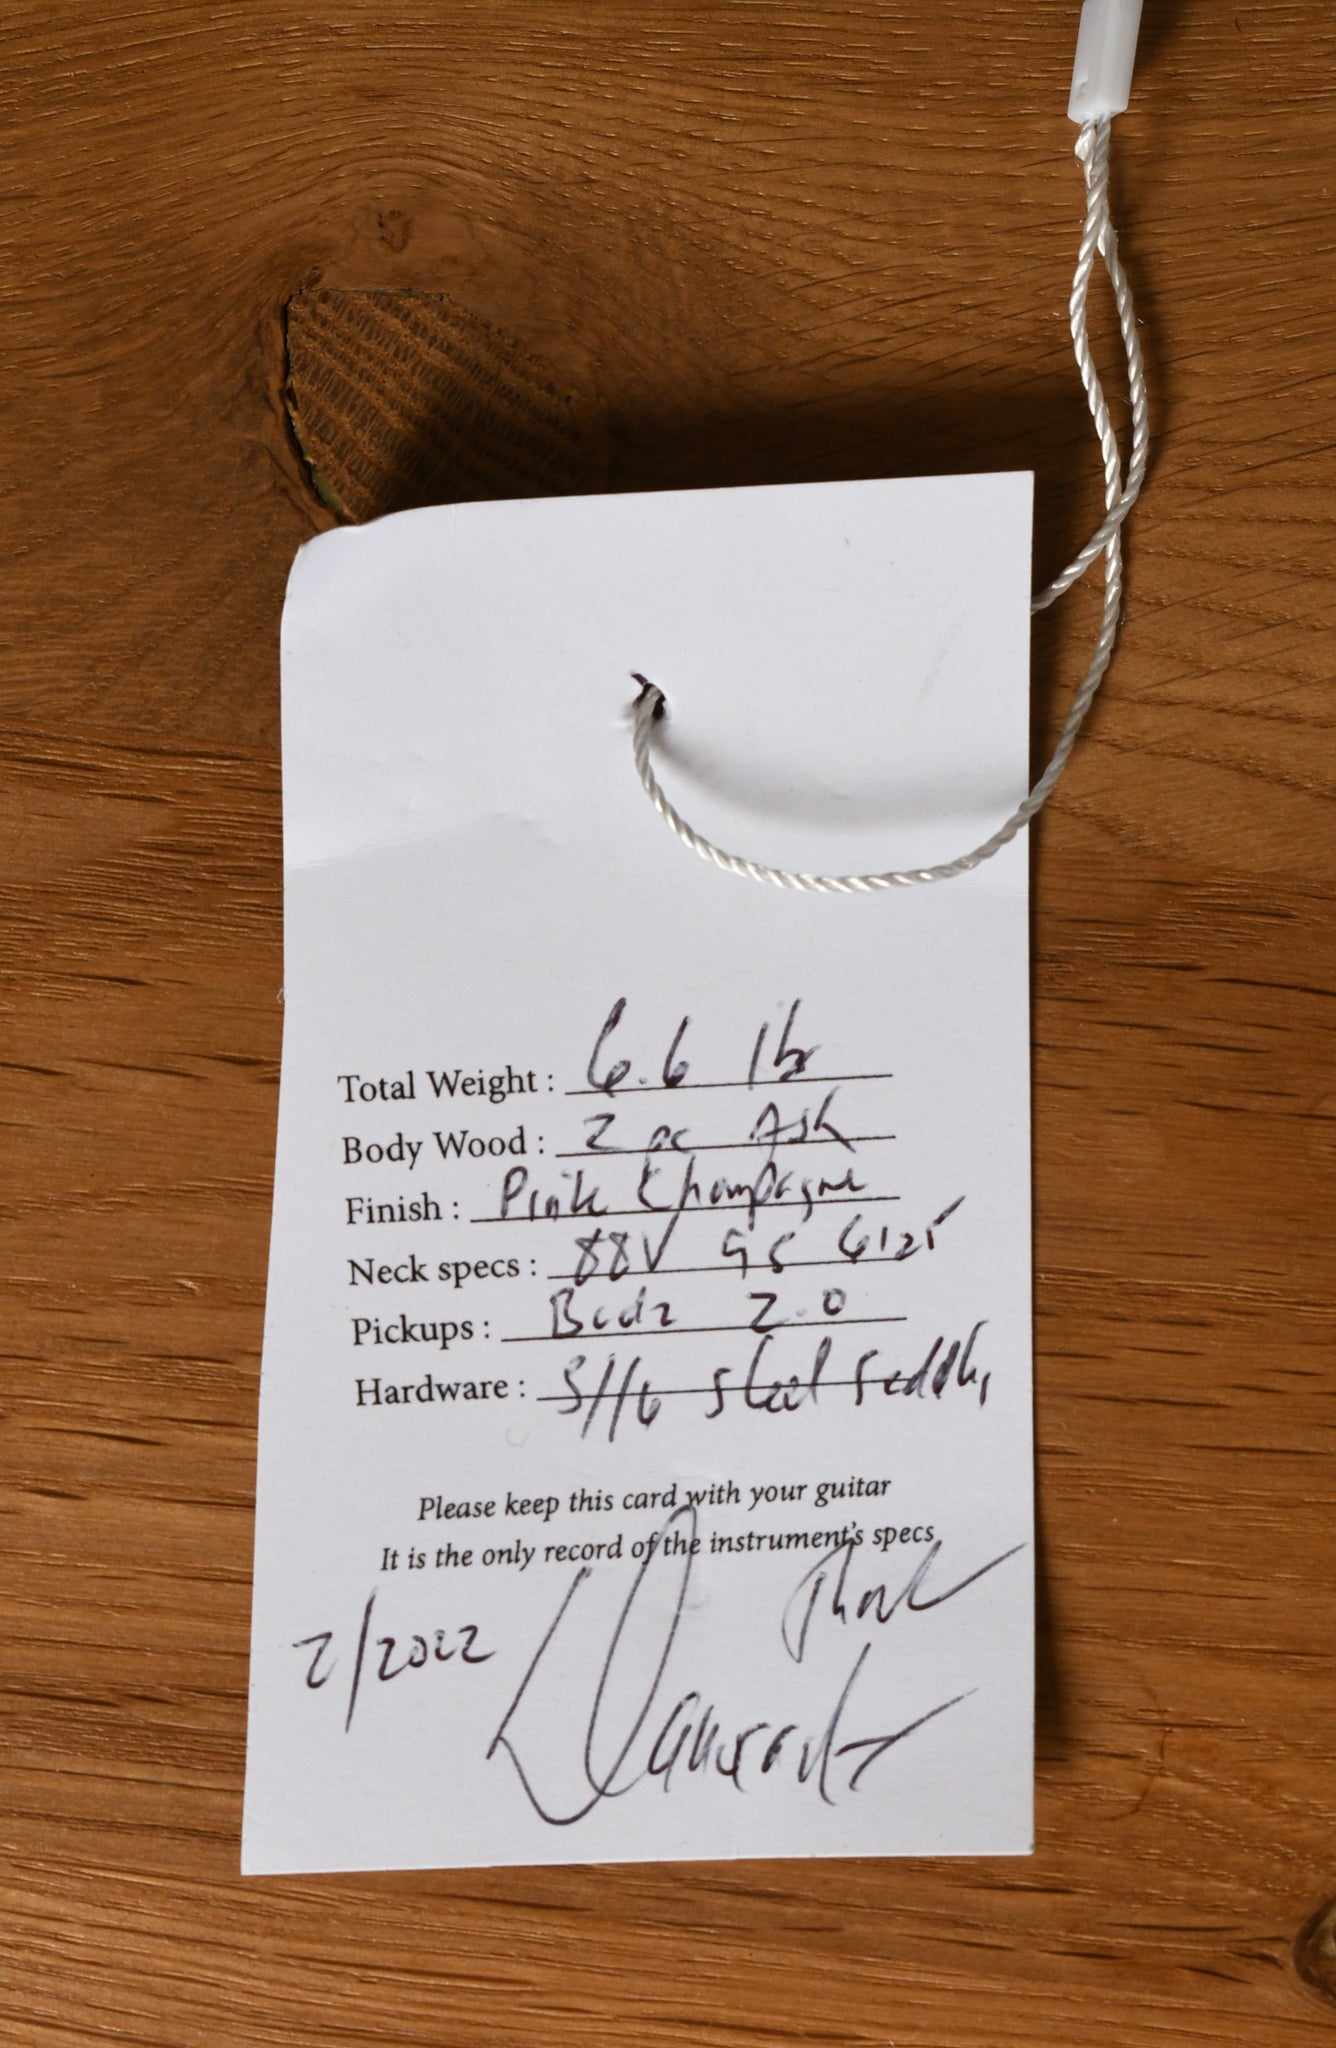 Total Weight : 6.6 lb
Body Wood : 2 pc Ash
Finish : Pink Champagne
Neck specs : 88V 95 6125
Pickups : 2.0
Hardware : 5/16 steel saddles
Please keep this card with your guitar
It is the only record of the instrument's specs
Thank
2/2022